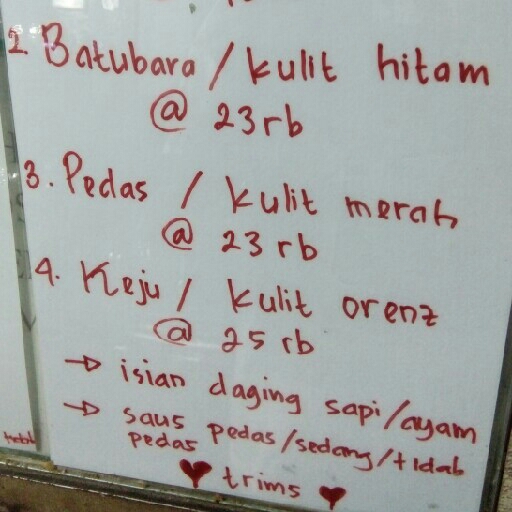 2. Batubara / kulit hitam
@ 23 rb
3. Pedas / kulit merah
@ 23 rb
4. Keju / kulit orenz
@ 25 rb
→ isian daging sapi/ayam
→ saus pedas/sedang/tidak
pedas
♥ trims ♥